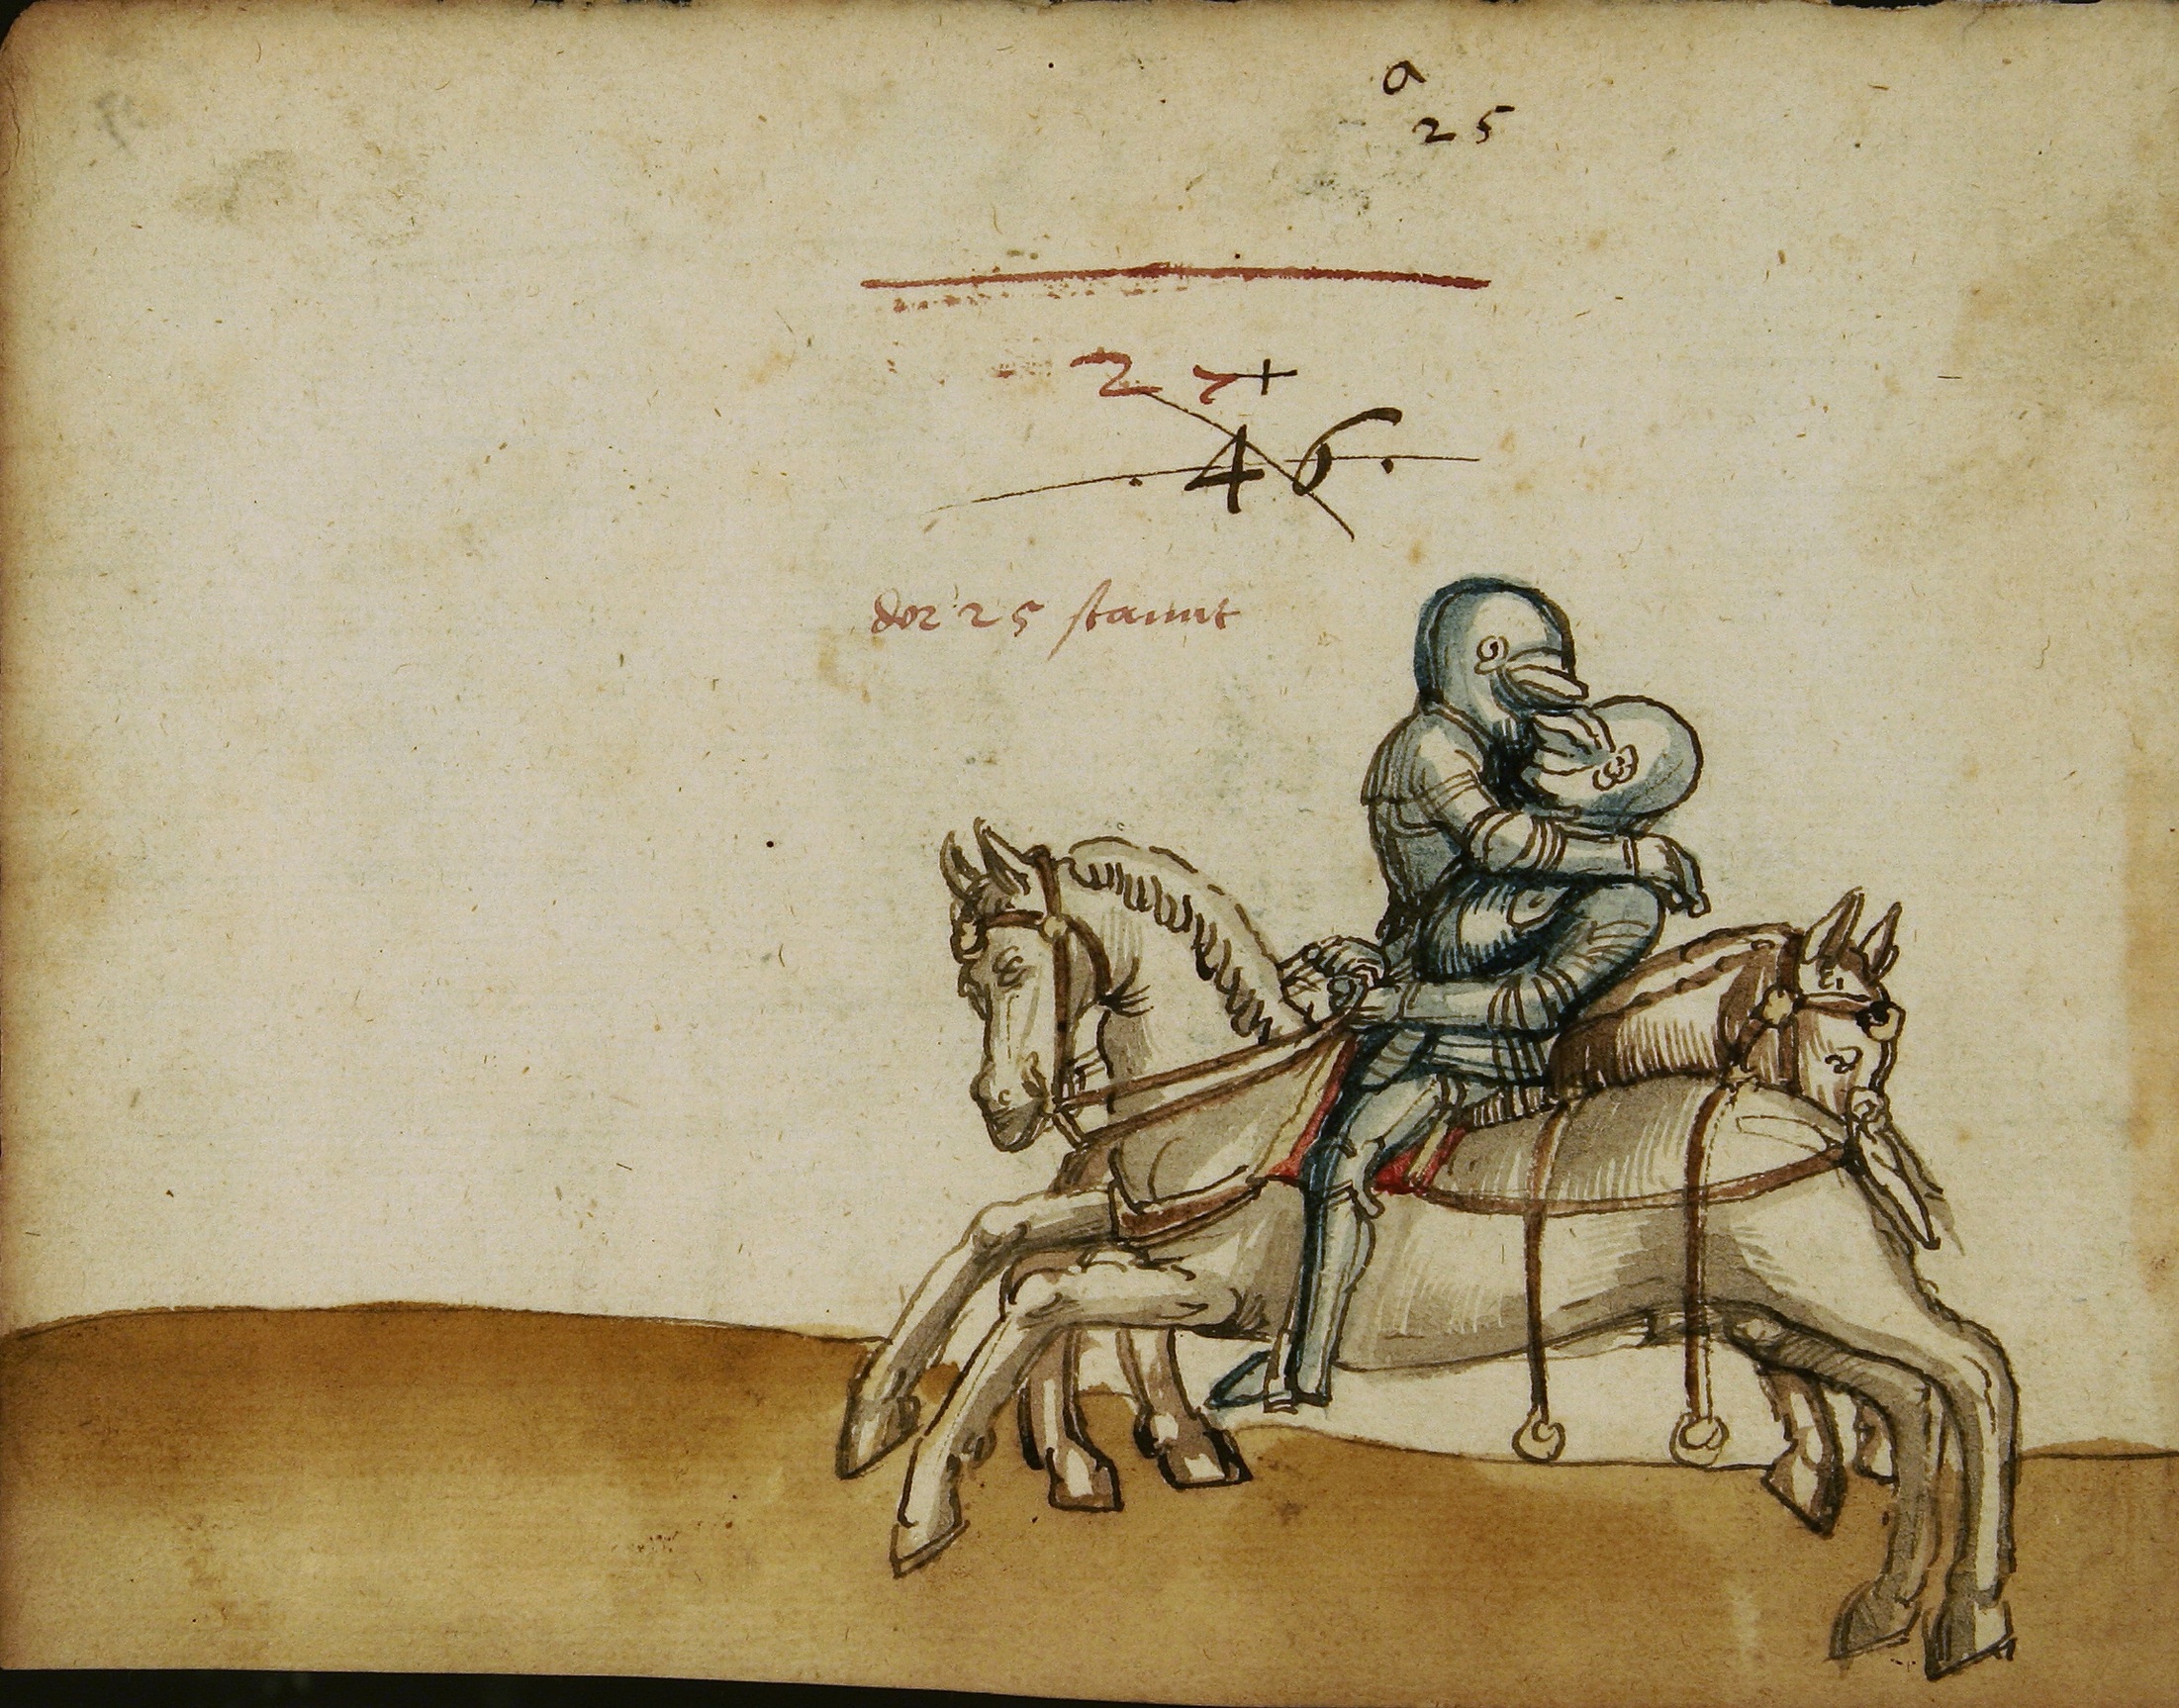 a
25
2 7
46.
der 25 stamt